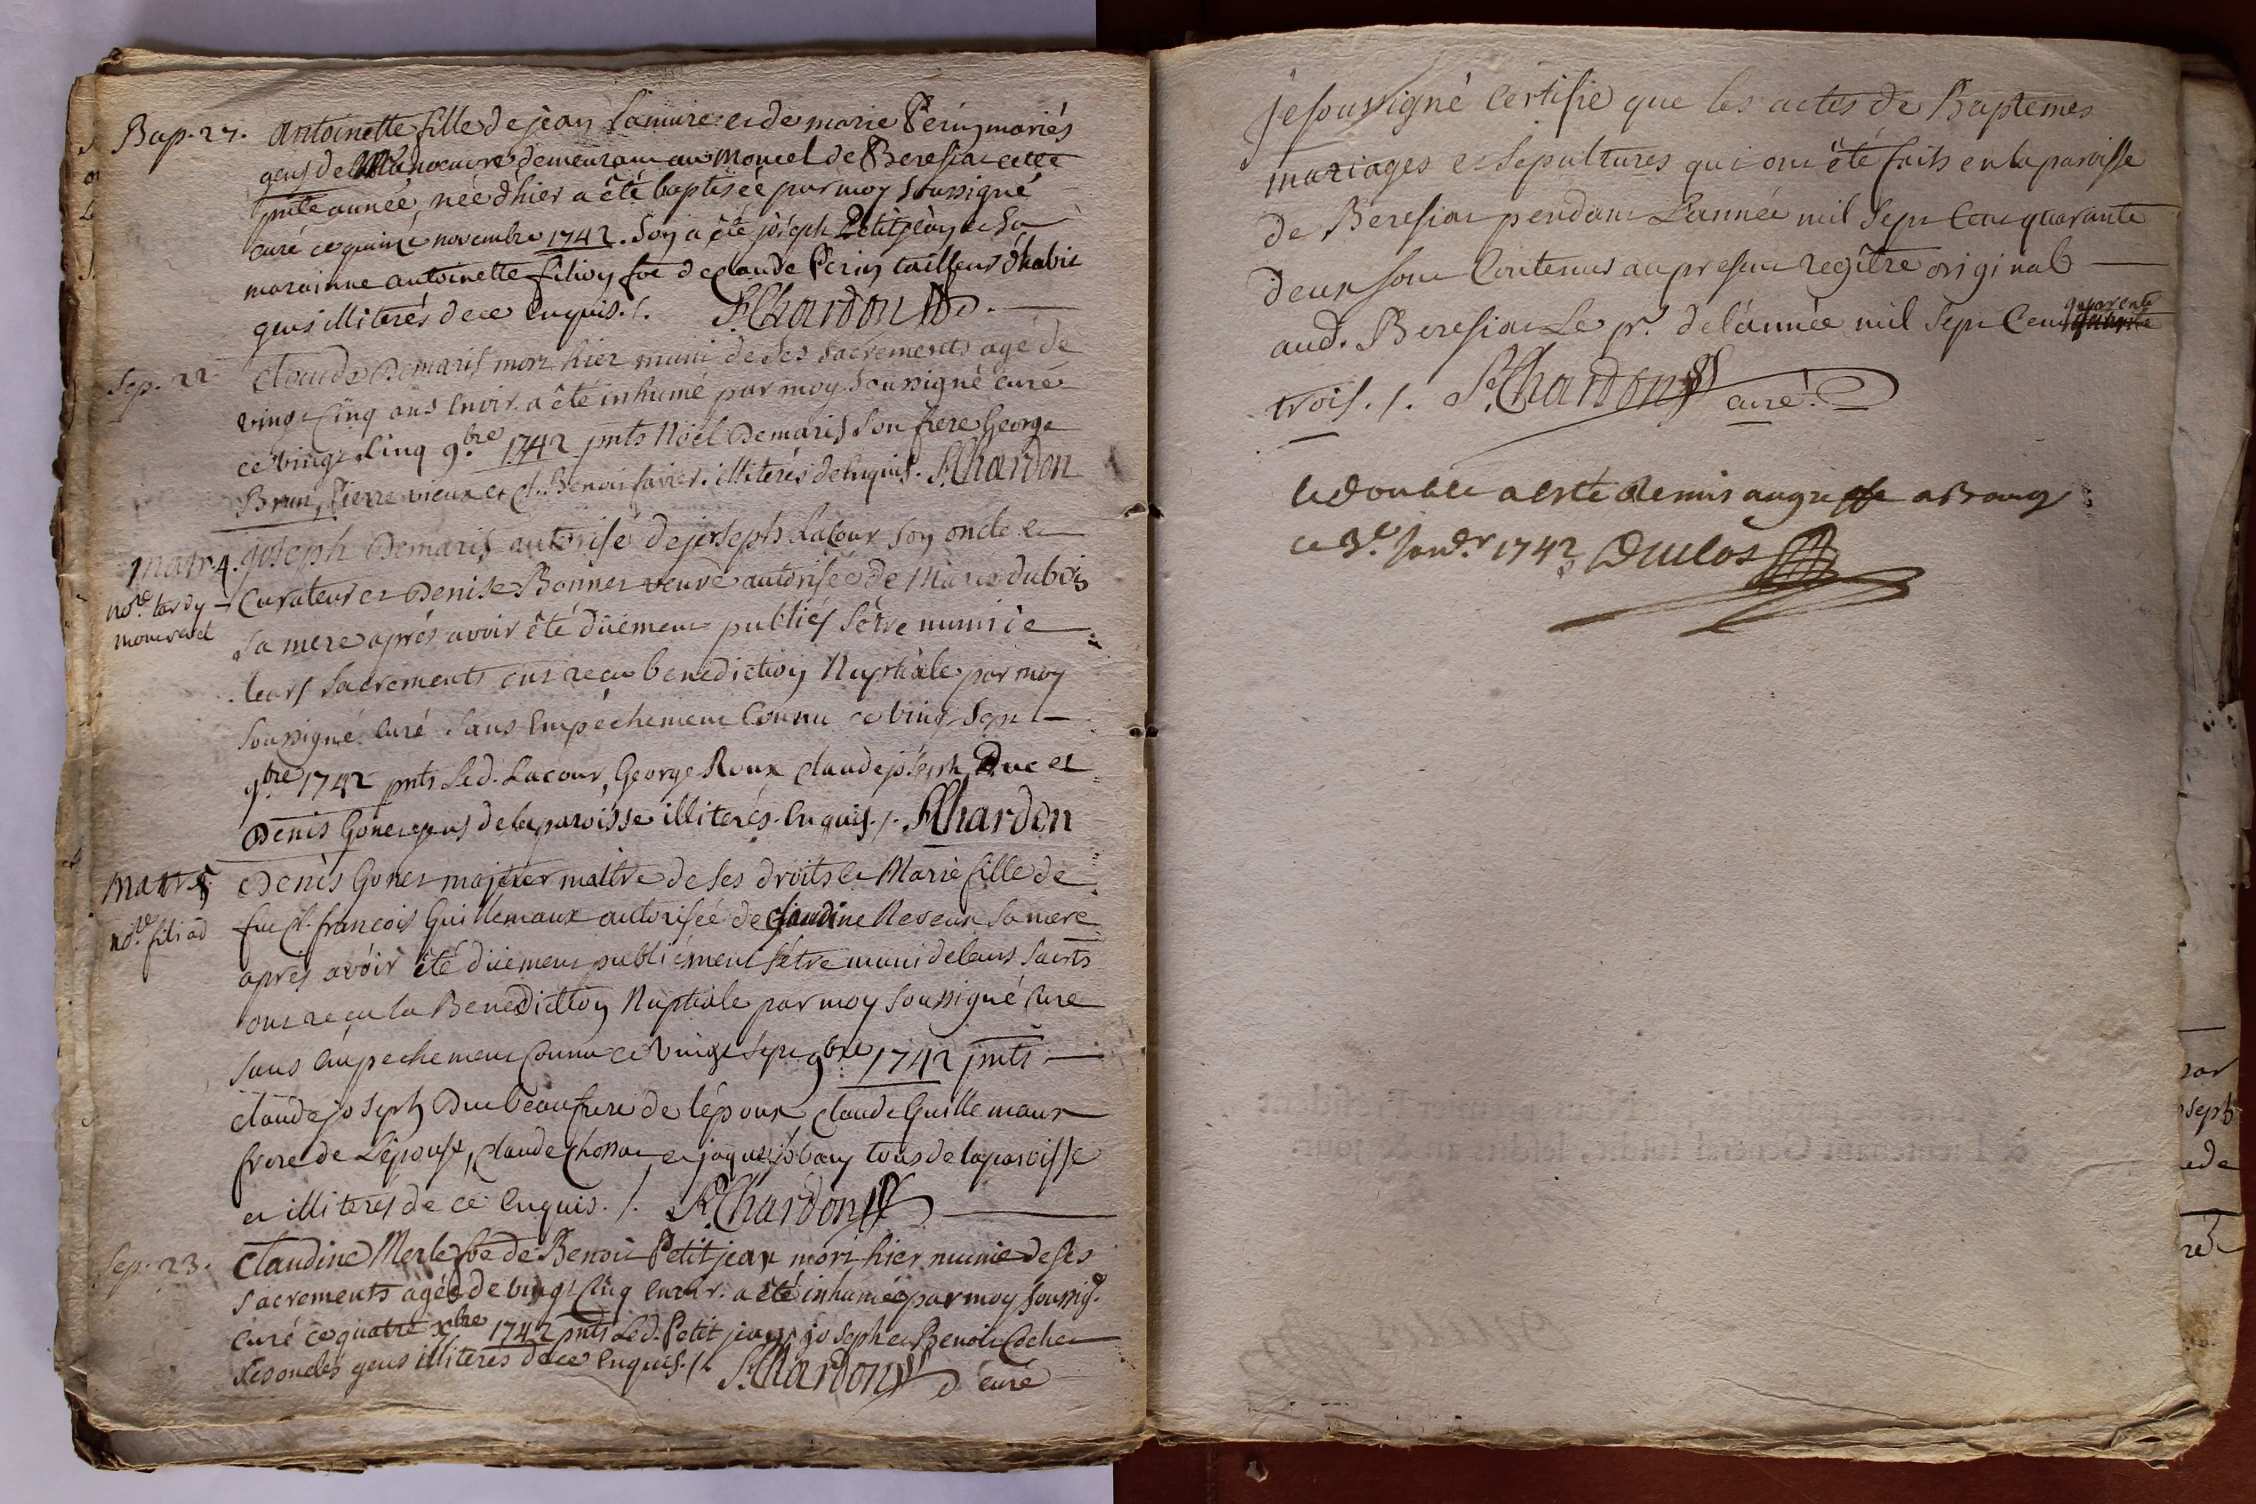 Bap. 27. Antoinette fille de jean Lamure et de marie Perin mariés
gens de Manoeuvre demeurant au moncel de Beresiat cette
pnte année, née d'hier a été baptiséé par moy soussigné
curé ce quinze novembre 1742. Son a été joseph Petitjean et sa
marainne antoinette filion foe de claude Perin tailleur d'habit
gens illiterés de ce enquis ./. Chardon
Sep. 22 Claude Demaris mort hier muni de ses sacrements agé de
vingt cinq ans envir. a été inhumé par moy soussigné curé
ce vingt cinq 9.bre 1742 pnts Nöel Demaris son frere George
Brun, Pierre vieux et Cl. Benoit favier. illiterés de enquis. Chardon
Mar. 4. joseph Demaris autorisé de joseph Lacour son oncle et
no.re tardy curateur et Denise Bonnet veuve autorisée de Marie dubois
montrevel sa mere aprés avoir été düement publiés s'étre munis de
leurs sacrements ont reçu benediction Nuptiale par moy
soussigné curé sans empéchement connu ce vingt sept
9bre 1742 pnts led. Lacour, George Roux claude joseph Duc et
Denis Gonet gens de la paroisse illiterés. enquis ./. Chardon
Mar. 5 Denis Gonet majeur maître de ses droits et Marie fille de
no.re feu Cl. francois Guillemaux autorisée de claudine sa mere
aprés avoir été düement publiément s'étre muni de leurs sacrts
ont reçu la Benediction Nuptiale par moy soussigné curé
sans empechement connu ce vingt sept 9bre 1742 pnts
claude joseph Duc beaufrere de l'époux, claude Guillemaux
frere de L'épouse, claude Chossat et jaque tous de la paroisse
et illiterés de ce enquis ./. Chardon
Sep. 23. Claudine Merle foe de Benoit Petitjean mort hier munie de ses
sacrements agéé de vingt cinq envir. a été inhumée par moy soussig.
curé ce quatre xbre 1742 pnts led. Petitjean, joseph et Benoit
ses oncles gens illiterés de ce enquis ./. Chardon curé
je soussigné certifie que les actes de Baptemes
mariages et sepultures qui ont été faits en la paroisse
de Beresiat pendant L'année mil sept cent quarante
deux sont contenus au present regitre original
aud. Beresiat Le pr. de l'année mil sept cent quarente
trois ./. Chardon curé
le double a esté Remis au greffe a Bourg
ce 3.e janv.r 1743 Duclos